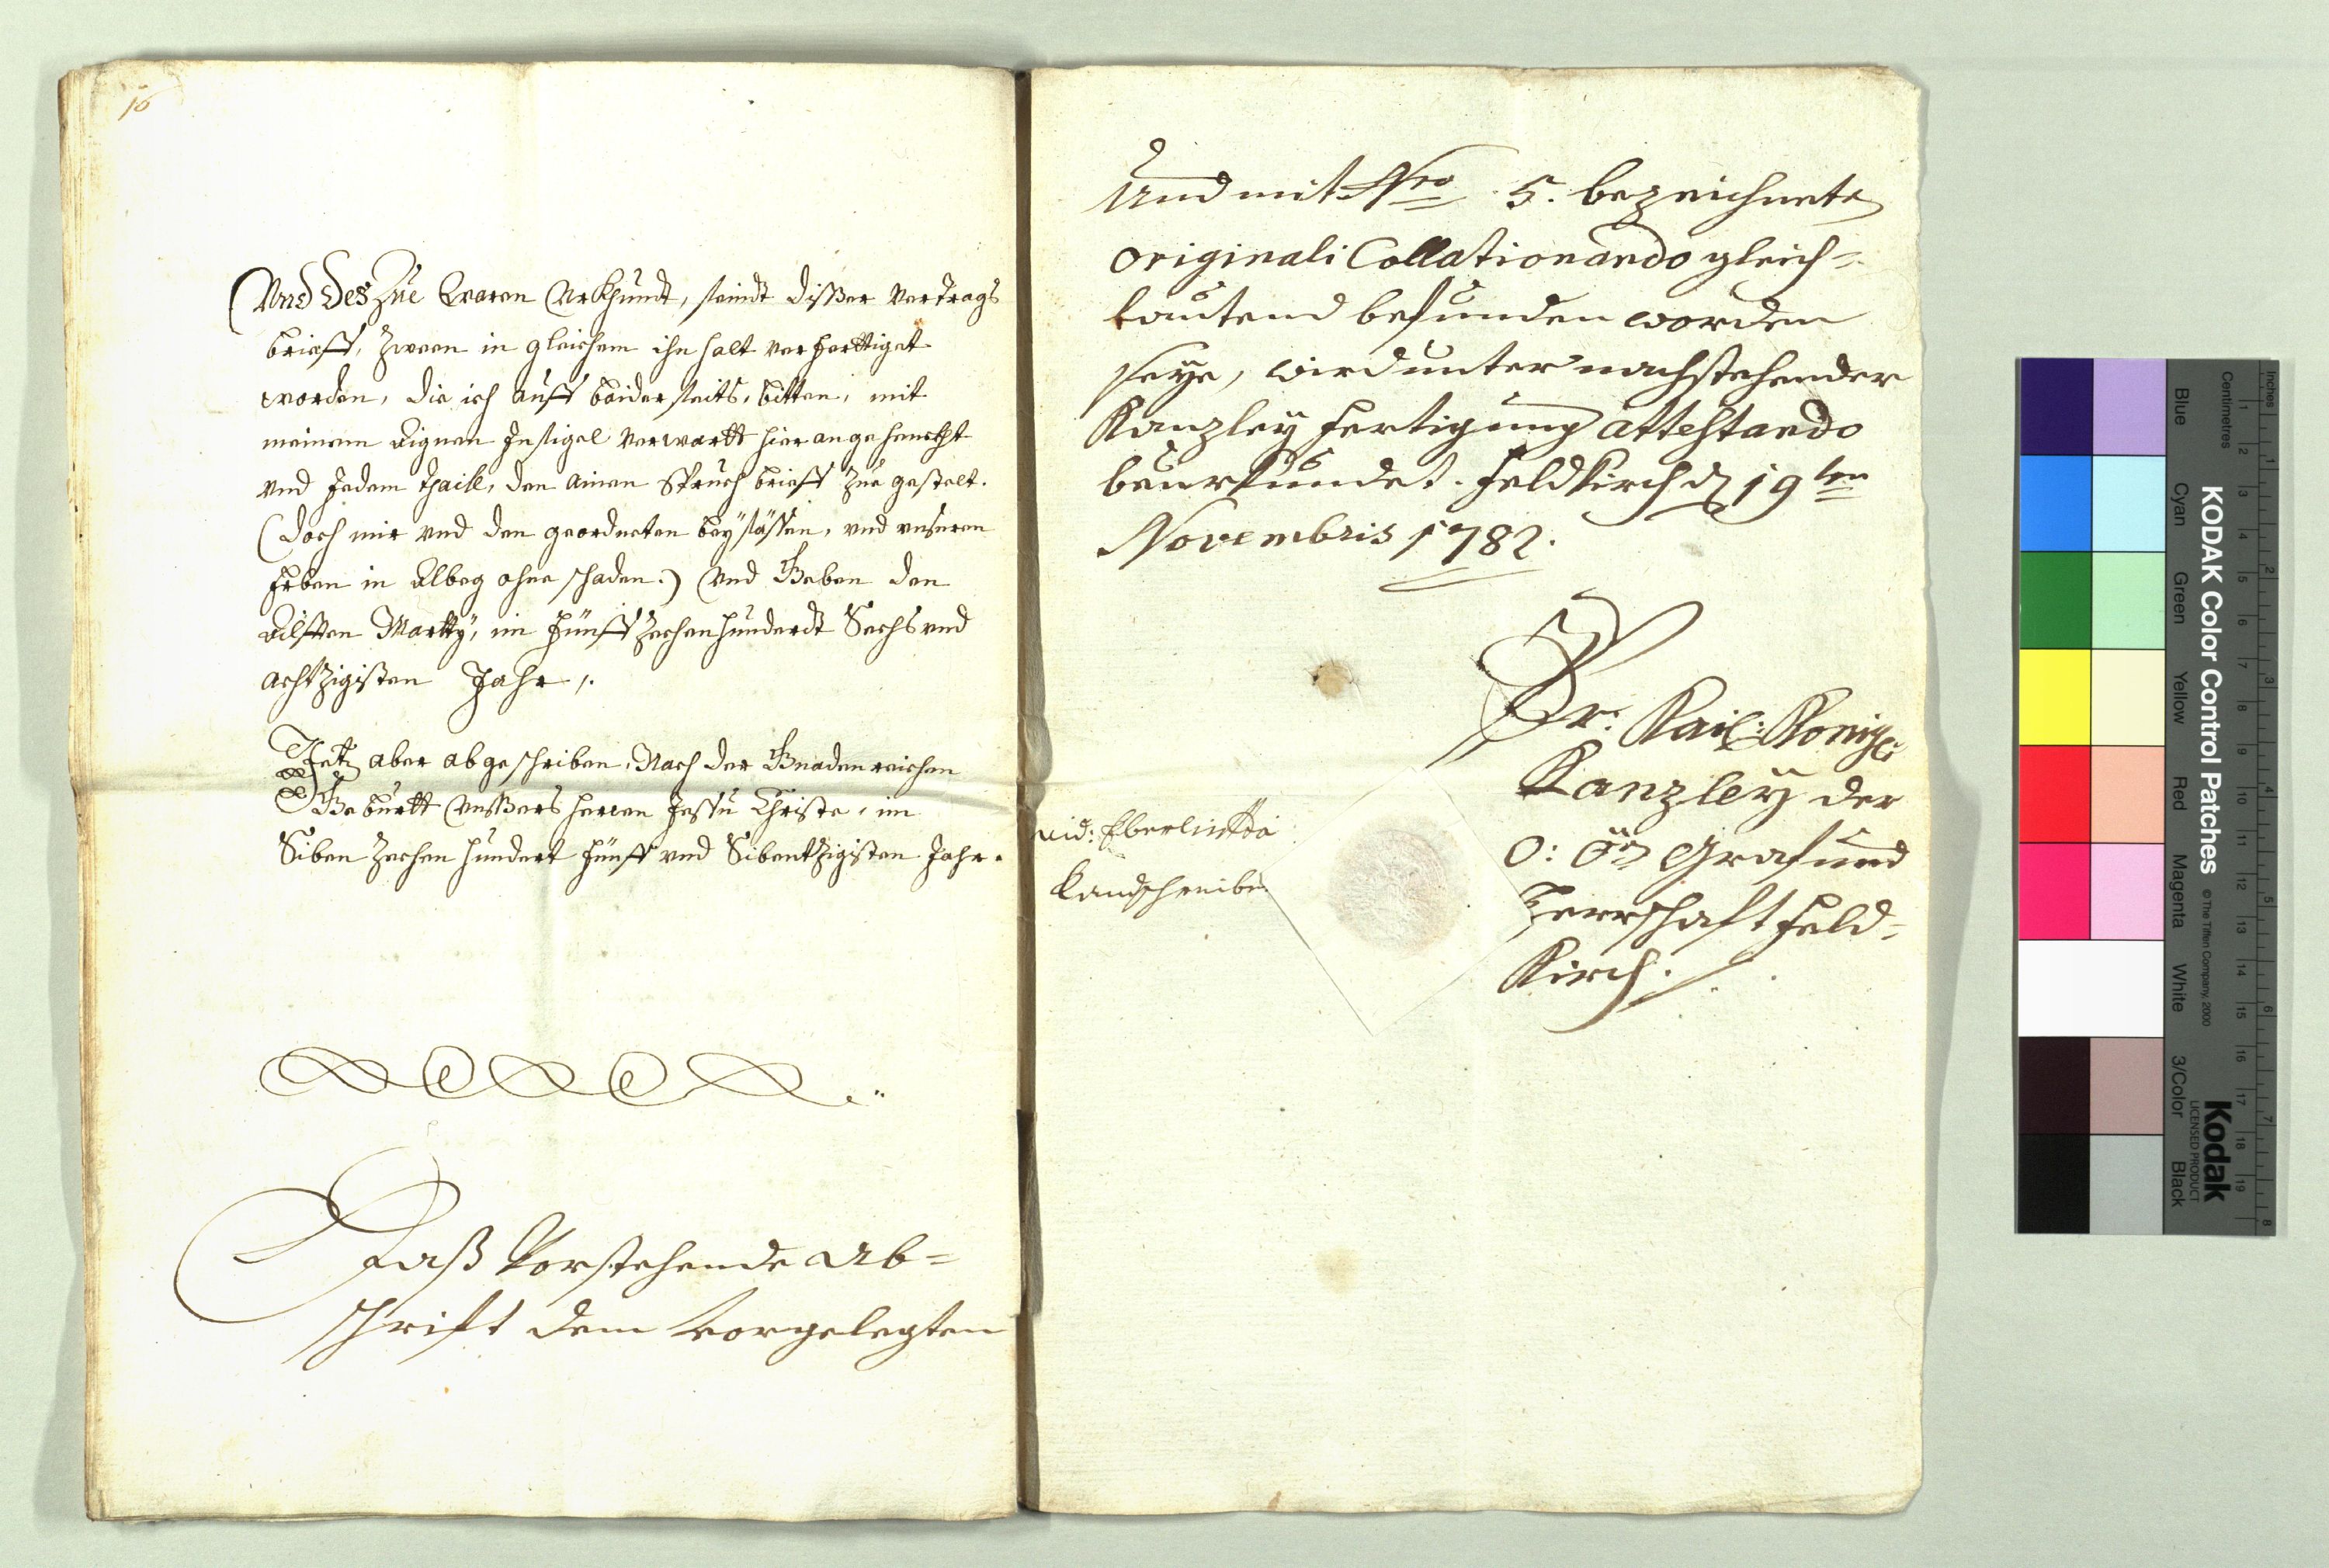 16
Vnd des zue Waren Vrkhundt, seindt disser Vertrags
brieff, zween in gleichem ihn halt verferttiget
worden, die ich auff baiderseits, bitten, mit
meinem Aignen Insigel verwartt hieran gehenckht
vnd Jedem thaill, den ainen Spruch brieff zue gestelt.
(doch mir vnd den geordneten beysässen, vnd vnseren
Erben in Albeg ohne schaden.) Vnd Geben den
Ailfften Marttÿ, im fünffzechenhunderdt Sechs vnd
achtzigisten Jahr,.
Jetz aber abgeschriben, Nach der Gnadenreichen
Geburtt Vnssers herren Jessu Christe, im
Siben zechen hundert fünff vnd Sibentzigisten Jahr.
Daß Vorstehende Ab=
schrift dem vorgelegten
Und mit Nro 5. bezeichnete
originali Collationando gleich=
lautend befunden worden
seye, wird unter nachstehender
Kanzley Fertigung attestando
beurkundet. Feldkirch d 19ten
Novembris 1782.
Kail: Königl:
Kanzley der
O: Ö: Graf und
Herrschaft Feld=
Kirch.
vid: Eberlin
Landschreiber
KODAK Color Control Patches
© The Tiffen Company, 2000
Kodak
LICENSED PRODUCT
Inches
Centimetres
1 2 3 4 5 6 7 8
1 2 3 4 5 6 7 8 9 10 11 12 13 14 15 16 17 18 19
Blue Cyan Green Yellow Red Magenta White 3/Color Black